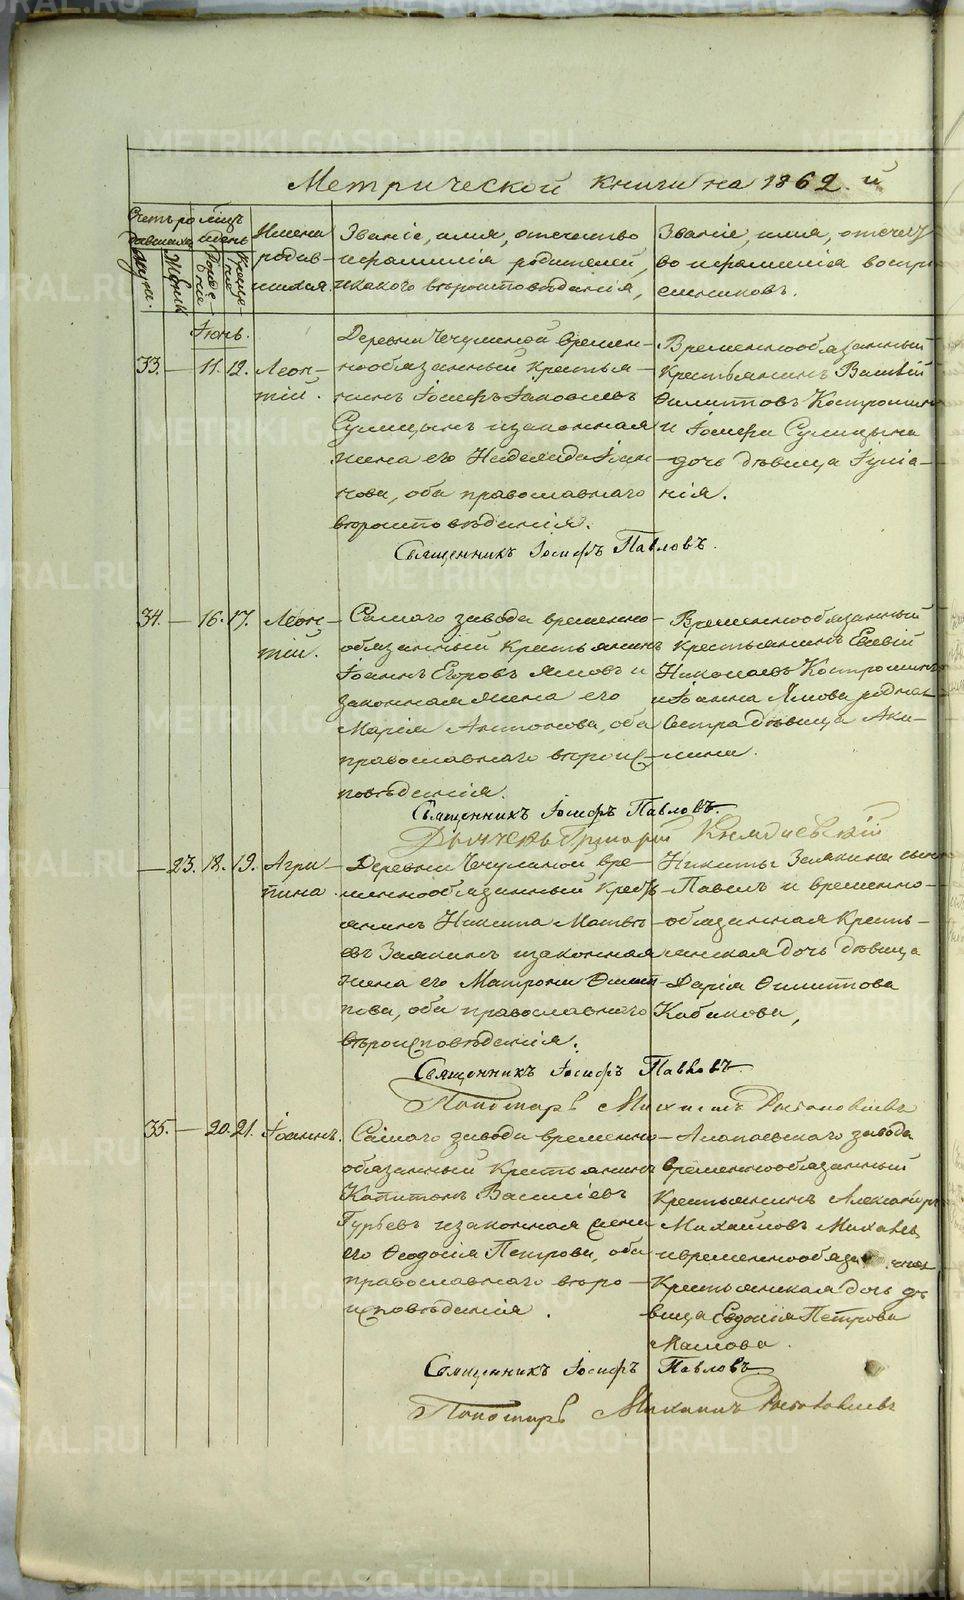 METRIKI.GASO-URAL.RU
Метрической книги на 1862. й
Счетъ ро
дившихся
Мужи.
Женк
Мѣсяцъ
и день
Рожде-
нія
Креще-
нія
Имена
родив-
шихся
Званіе, имя, отчество
и фамилія родителей,
и какого вѣроисповѣданія,
Званіе, имя, отчест
во и фамилія воспрі
емниковъ.
Іюнь.
33. — 11. 12. Леон-
тій.
Деревни Чечулиной времен-
нообязанный крестья-
нинъ Іосифъ Іаковлевъ
Сулицынъ и законная
жена его Надежда Іоан-
нова, оба православнаго
вѣроисповѣданія.
Временнообязанный
крестьянинъ Василій
Филиповъ Костроминъ
и Іосифа Сулицына
дочь дѣвица Іуліа-
нія.
Священникъ Іосифъ Павловъ.
34. — 16. 17. Леон-
тій.
Самаго завода временно-
обязанный крестьянинъ
Іоаннъ Егоровъ Ямовъ и
законная жена его
Марія Антонова, оба
православнаго вѣроис-
повѣданія.
Временнообязанный
крестьянинъ Евсевій
Николаевъ Костроминъ
и Іоанна Ямова родная
сестра дѣвица Аки-
лина.
Священникъ Іосифъ Павловъ.
Дьячекъ Григорій
— 23. 18. 19. Агри
пина.
Деревни Чечулиной вре-
меннообязанный кресть-
янинъ Никита Матвѣ-
евъ Заякинъ и законная
жена его Матрона Филип-
пова, оба православнаго
вѣроисповѣданія.
Никиты Заякина сынъ
Павелъ и временно-
обязанная кресть-
янская дочь дѣвица
Дарія Филиппова
Кабакова,
Священникъ Іосифъ Павловъ
Пономарь Михаилъ
35. — 20. 21. Іоаннъ.
Самаго завода временно-
обязанный крестьянинъ
Капитонъ Василіевъ
Гурьевъ и законная жена
его Феодосія Петрова, оба
православнаго вѣро-
исповѣданія.
Алапаевскаго завода
временнообязанный
крестьянинъ Александръ
Михаиловъ
и временнообяза
крестьянская дочь дѣ
вица Евдокія Петрова
Маслова.
Священникъ Іосифъ Павловъ
Пономарь Михаилъ